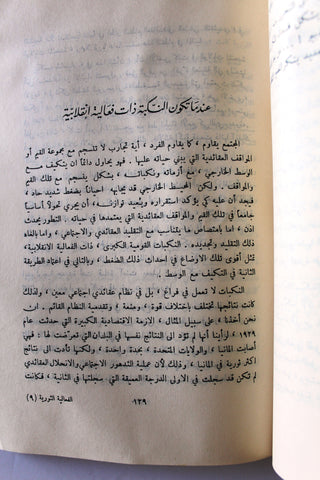 عندما تكون النكبة ذات فعالية انقلابية
المجتمع يقاوم ، كما يقاوم الفرد ، أية تجارب لا تنسجم مع مجموعة القيم أو
المواقف العقائدية التي يبني حياته عليها . فهو يحاول دائماً ان يتكيف مع
الوسط الخارجي ، مع أزماته ونكباته ، بشكل ينسجم مع تلك القيم
والمواقف . لكن المحيط الخارجي قد يجابهه احياناً بضغط شديد حاد ،
فيجد أن عليه كي يؤكد استقراره ويستعيد توازنه ، أن يجري تحولاً أساسياً
جامعاً في تلك القيم أو المواقف العقائدية التي يعتمدها في حياته . التطور يحدث
اذن ، إما بامتصاص ما يتناسب مع التقليد العقائدي والاجتماعي ، وإما بالغاء
ذلك التقليد وتجديده . النكبات القومية الكبرى ، ذات الفعالية الانقلابية ،
تمثل أقوى تلك الاوضاع في إحداث ذلك الضغط ، وبالتالي في اعتماد الطريقة
الثانية في التكيف مع الوسط .
النكبات لا تعمل في فراغ ، بل في نظام عقائدي اجتماعي معين ، ولذلك
كانت نتائجها تختلف باختلاف قوة ، ومنعة ، وتقدمية النظام القائم . ان
نحن أخذنا ، على سبيل المثال ، الازمة الاقتصادية الكبيرة التي حدثت عام
١٩٢٩ ، لرأينا أنها لم تؤد الى النتائج نفسها في البلدان التي تعرضت لها ؛ فهي
أصابت المانيا ، والولايات المتحدة ، بحدة واحدة ، ولكنها تأدت الى نتائج
اكثر ثورية في المانيا ، لأن عملية التدهور الاجتماعي والانحلال العقائدي
لم تكن قد سجلت في الاولى الدرجة العميقة التي سجلتها في الثانية ، فكانت
١٢٩
الفعالية الثورية (٩)